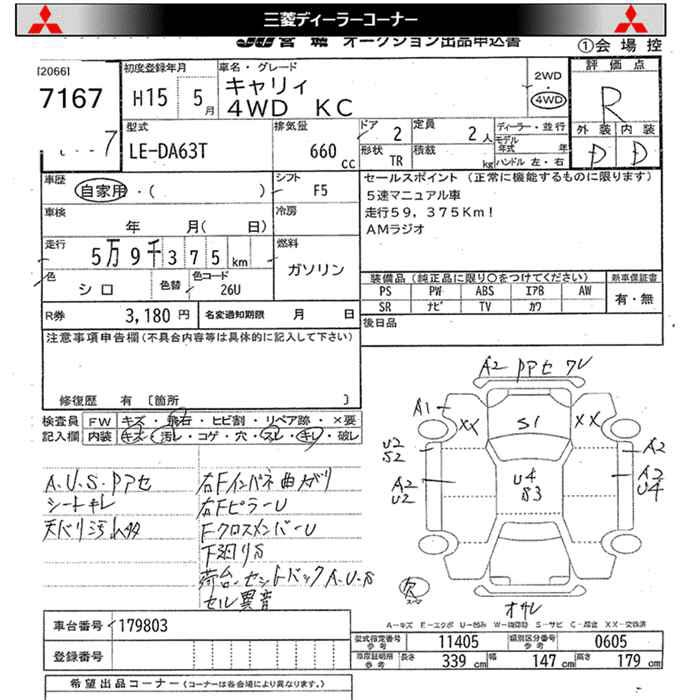 三菱ディーラーコーナー
JU 宮城 オークション出品申込書
①会場控
[2066]
7167
初度登録年月
H15 5月
車名・グレード
キャリィ
4WD KC
2WD
4WD
評価点
R
外装 内装
D D
7
型式
LE-DA63T
排気量
660 cc
ドア 2
定員 2人
形状 TR
積載 kg
ディーラー・並行
モデル年式 年
ハンドル 左・右
車歴
自家用・( )
シフト
F5
セールスポイント (正常に機能するものに限ります)
5速マニュアル車
走行59,375Km!
AMラジオ
車検
年 月( 日)
冷房
走行
5万9千375km
燃料
ガソリン
色
シロ
色替
色コード
26U
装備品 (純正品に限り○をつけてください)
PS PW ABS エアB AW
SR ナビ TV カワ
新車保証書
有・無
R券 3,180円
名変通知期限 月 日
後日品
注意事項申告欄(不具合内容等は具体的に記入して下さい)
修復歴 有 [箇所 ]
検査員記入欄
FW キズ・飛石・ヒビ割・リペア跡・×要
内装 キズ・汚レ・コゲ・穴・スレ・キレ・破レ
A.U.S.Pアセ
シートキレ
天バリ汚れ
右Fインパネ曲ガリ
右FピラーU
FクロスメンバーU
下廻りS
荷台・セントバックA.U.S
セル異音
A2 Pアセ ワレ
A1
XX
S1
XX
U2
S2
A2
U2
U4
S3
A2
A3
U4
欠
スペア
オサレ
A-キズ E-エクボ U-凹み W-補修跡 S-サビ C-腐食 XX-交換済
車台番号 179803
登録番号
型式指定番号 参考 11405
類別区分番号 参考 0605
車庫証明用 参考 長さ 339cm 幅 147cm 高さ 179cm
希望出品コーナー (コーナーは各会場により異なります。)